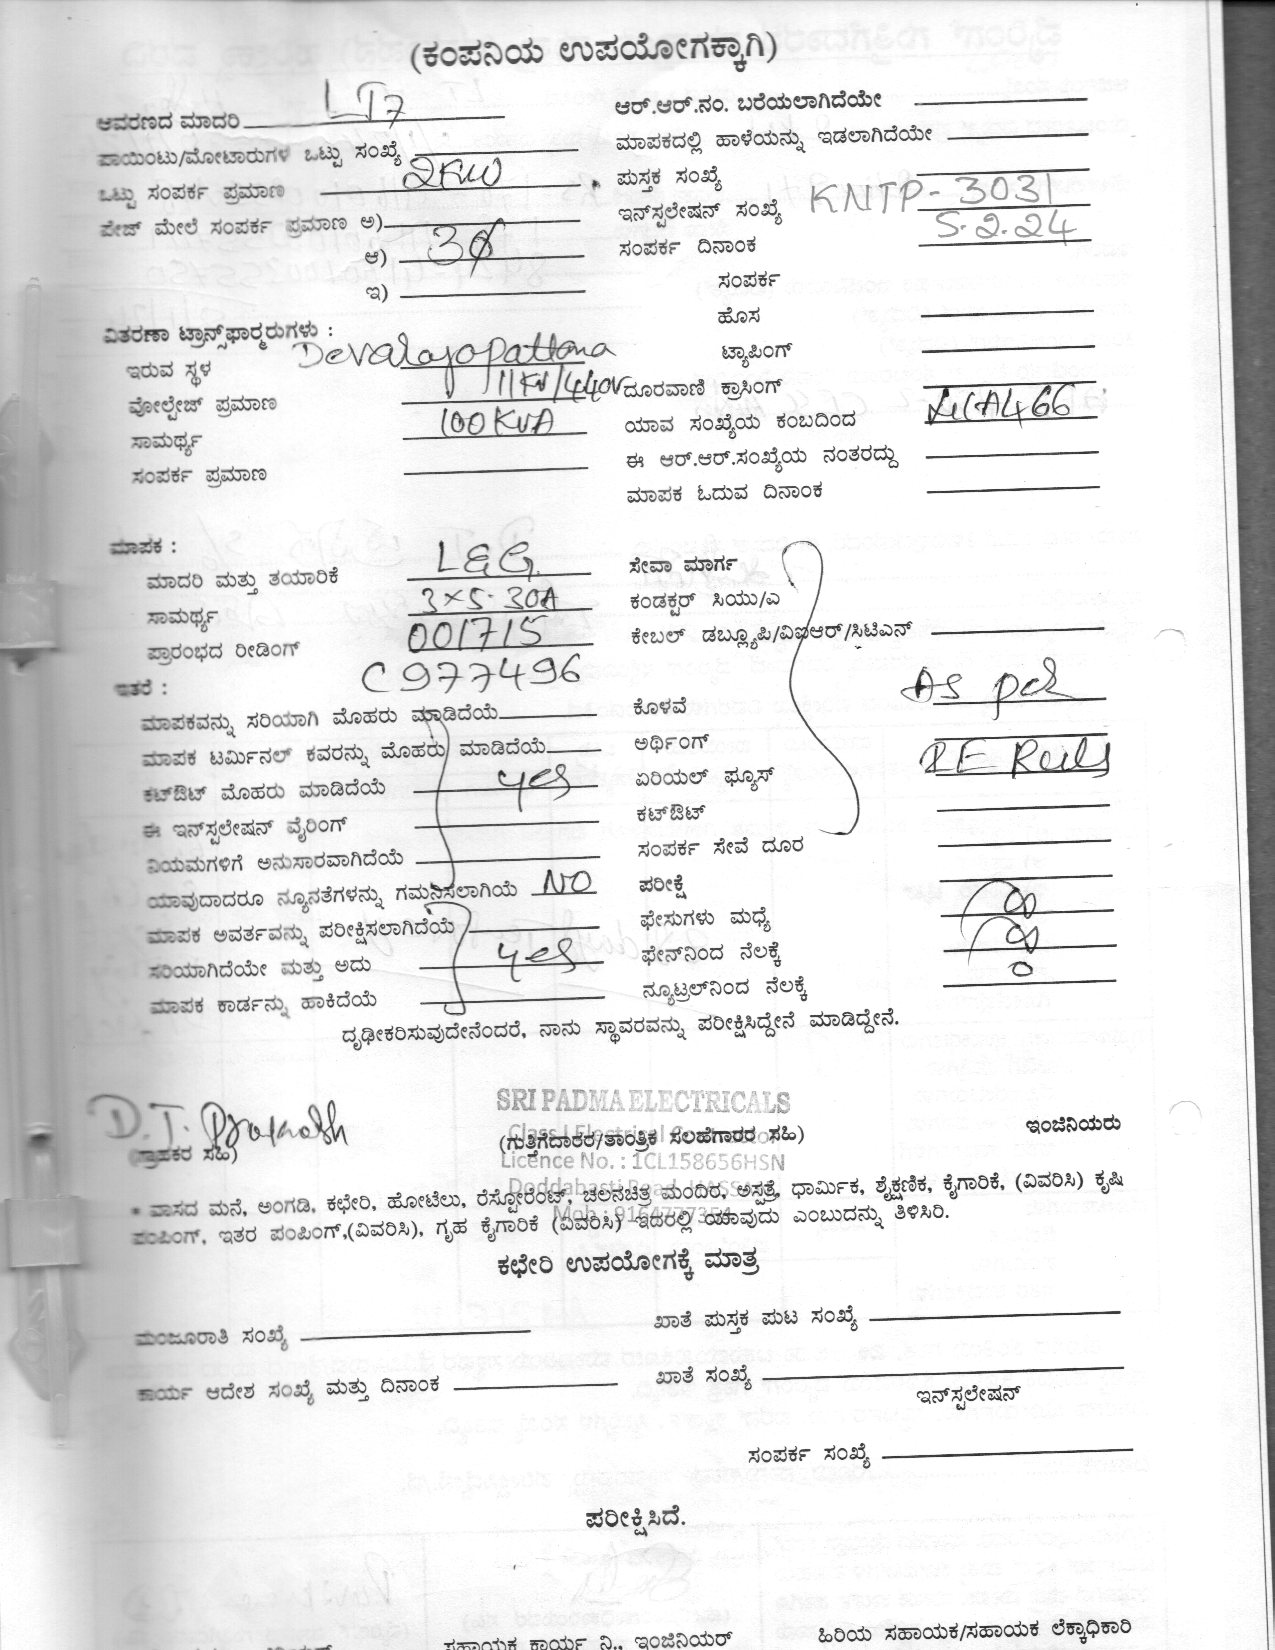 (ಕಂಪನಿಯ ಉಪಯೋಗಕ್ಕಾಗಿ)
ಆವರಣದ ಮಾದರಿ LT7
ಪಾಯಿಂಟು/ಮೋಟಾರುಗಳ ಒಟ್ಟು ಸಂಖ್ಯೆ
ಒಟ್ಟು ಸಂಪರ್ಕ ಪ್ರಮಾಣ 2KW
ಪೇಜ್ ಮೇಲೆ ಸಂಪರ್ಕ ಪ್ರಮಾಣ ಅ)
ಆ) 3ϕ
ಇ)
ಆರ್.ಆರ್.ನಂ. ಬರೆಯಲಾಗಿದೆಯೇ
ಮಾಪಕದಲ್ಲಿ ಹಾಳೆಯನ್ನು ಇಡಲಾಗಿದೆಯೇ
ಪುಸ್ತಕ ಸಂಖ್ಯೆ
ಇನ್‌ಸ್ಟಲೇಷನ್ ಸಂಖ್ಯೆ KNTP-3031
ಸಂಪರ್ಕ ದಿನಾಂಕ 5.2.24
ಸಂಪರ್ಕ
ಹೊಸ
ಟ್ಯಾಪಿಂಗ್
ದೂರವಾಣಿ ಕ್ರಾಸಿಂಗ್
ಯಾವ ಸಂಖ್ಯೆಯ ಕಂಬದಿಂದ
ಈ ಆರ್.ಆರ್.ಸಂಖ್ಯೆಯ ನಂತರದ್ದು
ಮಾಪಕ ಓದುವ ದಿನಾಂಕ
ವಿತರಣಾ ಟ್ರಾನ್ಸ್‌ಫಾರ‍್ಮರುಗಳು :
ಇರುವ ಸ್ಥಳ
ವೋಲ್ಟೇಜ್ ಪ್ರಮಾಣ 11KV/440V
ಸಾಮರ್ಥ್ಯ 100KVA
ಸಂಪರ್ಕ ಪ್ರಮಾಣ
ಮಾಪಕ :
ಮಾದರಿ ಮತ್ತು ತಯಾರಿಕೆ L&G
ಸಾಮರ್ಥ್ಯ 3×5-30A
ಪ್ರಾರಂಭದ ರೀಡಿಂಗ್ 001715
C977496
ಇತರೆ :
ಮಾಪಕವನ್ನು ಸರಿಯಾಗಿ ಮೊಹರು ಮಾಡಿದೆಯೆ
ಮಾಪಕ ಟರ್ಮಿನಲ್ ಕವರನ್ನು ಮೊಹರು ಮಾಡಿದೆಯೆ
ಕಟ್‌ಔಟ್ ಮೊಹರು ಮಾಡಿದೆಯೆ yes
ಈ ಇನ್‌ಸ್ಟಲೇಷನ್ ವೈರಿಂಗ್
ನಿಯಮಗಳಿಗೆ ಅನುಸಾರವಾಗಿದೆಯೆ
ಯಾವುದಾದರೂ ನ್ಯೂನತೆಗಳನ್ನು ಗಮನಿಸಲಾಗಿಯೆ NO
ಮಾಪಕ ಅವರ್ತವನ್ನು ಪರೀಕ್ಷಿಸಲಾಗಿದೆಯೆ
ಸರಿಯಾಗಿದೆಯೇ ಮತ್ತು ಅದು yes
ಮಾಪಕ ಕಾರ್ಡನ್ನು ಹಾಕಿದೆಯೆ
ಸೇವಾ ಮಾರ್ಗ
ಕಂಡಕ್ಟರ್ ಸಿಯು/ಎ
ಕೇಬಲ್ ಡಬ್ಲ್ಯೂಪಿ/ವಿಐಆರ್/ಸಿಟಿಎನ್
ಕೊಳವೆ As per
ಅರ್ಥಿಂಗ್
ಏರಿಯಲ್ ಫ್ಯೂಸ್
ಕಟ್‌ಔಟ್
ಸಂಪರ್ಕ ಸೇವೆ ದೂರ
ಪರೀಕ್ಷೆ
ಫೇಸುಗಳು ಮಧ್ಯೆ
ಫೇನ್‌ನಿಂದ ನೆಲಕ್ಕೆ
ನ್ಯೂಟ್ರಲ್‌ನಿಂದ ನೆಲಕ್ಕೆ 0
ದೃಢೀಕರಿಸುವುದೇನೆಂದರೆ, ನಾನು ಸ್ಥಾವರವನ್ನು ಪರೀಕ್ಷಿಸಿದ್ದೇನೆ ಮಾಡಿದ್ದೇನೆ.
SRI PADMA ELECTRICALS
D.T. Prakash
Class I Electrical Contractor
(ಗುತ್ತಿಗೆದಾರರ/ತಾಂತ್ರಿಕ ಸಲಹೆಗಾರರ ಸಹಿ) ಇಂಜಿನಿಯರು
ಗ್ರಾಹಕರ ಸಹಿ)
Licence No. : 1CL158656HSN
* ವಾಸದ ಮನೆ, ಅಂಗಡಿ, ಕಛೇರಿ, ಹೋಟೆಲು, ರೆಸ್ಟೋರೆಂಟ್, ಚಲನಚಿತ್ರ ಮಂದಿರ, ಅಸ್ಪತ್ರೆ, ಧಾರ್ಮಿಕ, ಶೈಕ್ಷಣಿಕ, ಕೈಗಾರಿಕೆ, (ವಿವರಿಸಿ) ಕೃಷಿ
ಪಂಪಿಂಗ್, ಇತರ ಪಂಪಿಂಗ್,(ವಿವರಿಸಿ), ಗೃಹ ಕೈಗಾರಿಕೆ (ವಿವರಿಸಿ) ಇದರಲ್ಲಿ ಯಾವುದು ಎಂಬುದನ್ನು ತಿಳಿಸಿರಿ.
ಕಛೇರಿ ಉಪಯೋಗಕ್ಕೆ ಮಾತ್ರ
ಮಂಜೂರಾತಿ ಸಂಖ್ಯೆ ಖಾತೆ ಪುಸ್ತಕ ಪುಟ ಸಂಖ್ಯೆ
ಕಾರ್ಯ ಆದೇಶ ಸಂಖ್ಯೆ ಮತ್ತು ದಿನಾಂಕ ಖಾತೆ ಸಂಖ್ಯೆ
ಇನ್‌ಸ್ಟಲೇಷನ್
ಸಂಪರ್ಕ ಸಂಖ್ಯೆ
ಪರೀಕ್ಷಿಸಿದೆ.
ಸಹಾಯಕ ಕಾರ್ಯ ನಿ., ಇಂಜಿನಿಯರ್ ಹಿರಿಯ ಸಹಾಯಕ/ಸಹಾಯಕ ಲೆಕ್ಕಾಧಿಕಾರಿ